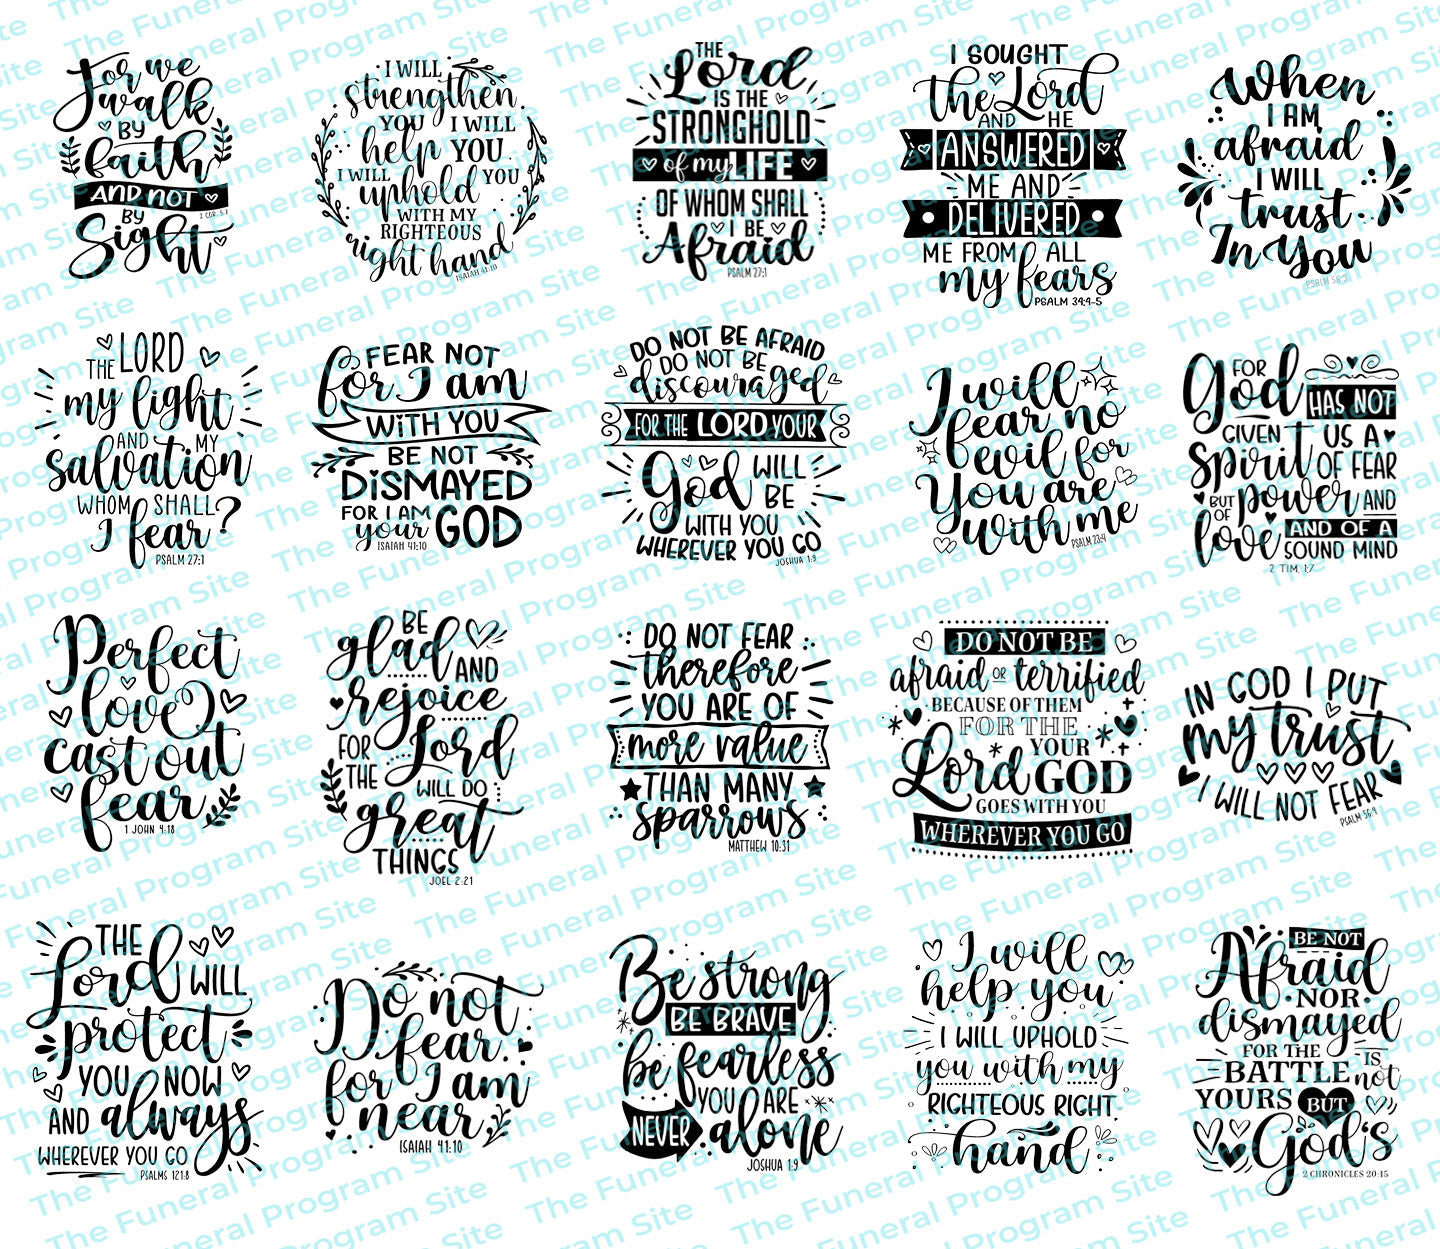 For we
walk
BY
faith
AND NOT
BY
Sight
2 COR. 5:7
I WILL
strengthen
YOU I WILL
help YOU
I WILL uphold YOU
WITH MY
RIGHTEOUS
right hand
ISAIAH 41:10
THE
Lord
IS THE
STRONGHOLD
of my LIFE
OF WHOM SHALL
I BE
Afraid
PSALM 27:1
I SOUGHT
the Lord
AND HE
ANSWERED
ME AND
DELIVERED
ME FROM ALL
my fears
PSALM 34:4-5
When
I AM
afraid
I WILL
trust
In You
PSALM 56:3
THE LORD
my light
AND MY
salvation
WHOM SHALL
I fear?
PSALM 27:1
FEAR NOT
for I am
WITH YOU
BE NOT
DISMAYED
FOR I AM
your GOD
ISAIAH 41:10
DO NOT BE AFRAID
DO NOT BE
discouraged
FOR THE LORD YOUR
God WILL
BE
WITH YOU
WHEREVER YOU GO
JOSHUA 1:9
I will
fear no
evil for
You are
with me
PSALM 23:4
FOR
God HAS NOT
GIVEN US A
spirit OF FEAR
BUT OF power AND
love AND OF A
SOUND MIND
2 TIM. 1:7
Perfect
love
cast out
fear
1 JOHN 4:18
BE
glad AND
rejoice
FOR
THE Lord
WILL DO
great
THINGS
JOEL 2:21
DO NOT FEAR
therefore
YOU ARE OF
more value
THAN MANY
sparrows
MATTHEW 10:31
DO NOT BE
afraid OR terrified
BECAUSE OF THEM
FOR THE
Lord YOUR
GOD
GOES WITH YOU
WHEREVER YOU GO
IN GOD I PUT
my trust
I WILL NOT FEAR
PSALM 56:4
THE
Lord WILL
protect
YOU NOW
AND always
WHEREVER YOU GO
PSALMS 121:8
Do not
fear
for I am
near
ISAIAH 41:10
Be strong
BE BRAVE
be fearless
YOU ARE
NEVER alone
JOSHUA 1:9
I will
help you
I WILL UPHOLD
you with my
RIGHTEOUS RIGHT
hand
BE NOT
Afraid
NOR
dismayed
FOR THE
BATTLE IS not
YOURS BUT
God's
2 CHRONICLES 20:15
The Funeral Program Site